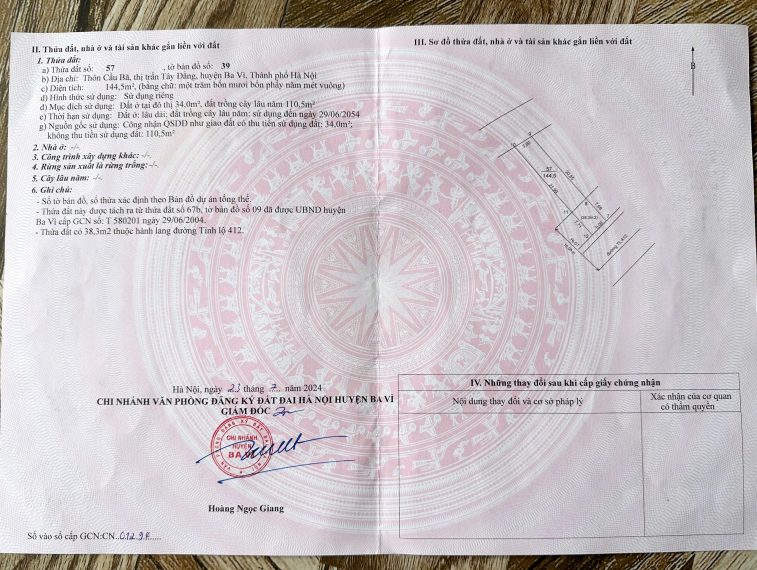 II. Thửa đất, nhà ở và tài sản khác gắn liền với đất
1. Thửa đất:
a) Thửa đất số: 57 , tờ bản đồ số: 39
b) Địa chỉ: Thôn Cầu Bã, thị trấn Tây Đằng, huyện Ba Vì, Thành phố Hà Nội
c) Diện tích: 144,5m², (bằng chữ: một trăm bốn mươi bốn phẩy năm mét vuông)
d) Hình thức sử dụng: Sử dụng riêng
đ) Mục đích sử dụng: Đất ở tại đô thị 34,0m², đất trồng cây lâu năm 110,5m²
e) Thời hạn sử dụng: Đất ở: lâu dài; đất trồng cây lâu năm: sử dụng đến ngày 29/06/2054
g) Nguồn gốc sử dụng: Công nhận QSDĐ như giao đất có thu tiền sử dụng đất: 34,0m²;
không thu tiền sử dụng đất: 110,5m²
2. Nhà ở: -/-
3. Công trình xây dựng khác: -/-
4. Rừng sản xuất là rừng trồng: -/-
5. Cây lâu năm: -/-
6. Ghi chú:
- Số tờ bản đồ, số thửa xác định theo Bản đồ dự án tổng thể.
- Thửa đất này được tách ra từ thửa đất số 67b, tờ bản đồ số 09 đã được UBND huyện
Ba Vì cấp GCN số: T 580201 ngày 29/06/2004.
- Thửa đất có 38,3m2 thuộc hành lang đường Tỉnh lộ 412.
Hà Nội, ngày 23 tháng 7 năm 2024
CHI NHÁNH VĂN PHÒNG ĐĂNG KÝ ĐẤT ĐAI HÀ NỘI HUYỆN BA VÌ
GIÁM ĐỐC
CHI NHÁNH
HUYỆN
BA VÌ
Hoàng Ngọc Giang
Số vào sổ cấp GCN:CN
III. Sơ đồ thửa đất, nhà ở và tài sản khác gắn liền với đất
B
57
144,5
đường TL 412
IV. Những thay đổi sau khi cấp giấy chứng nhận
Nội dung thay đổi và cơ sở pháp lý
Xác nhận của cơ quan
có thẩm quyền